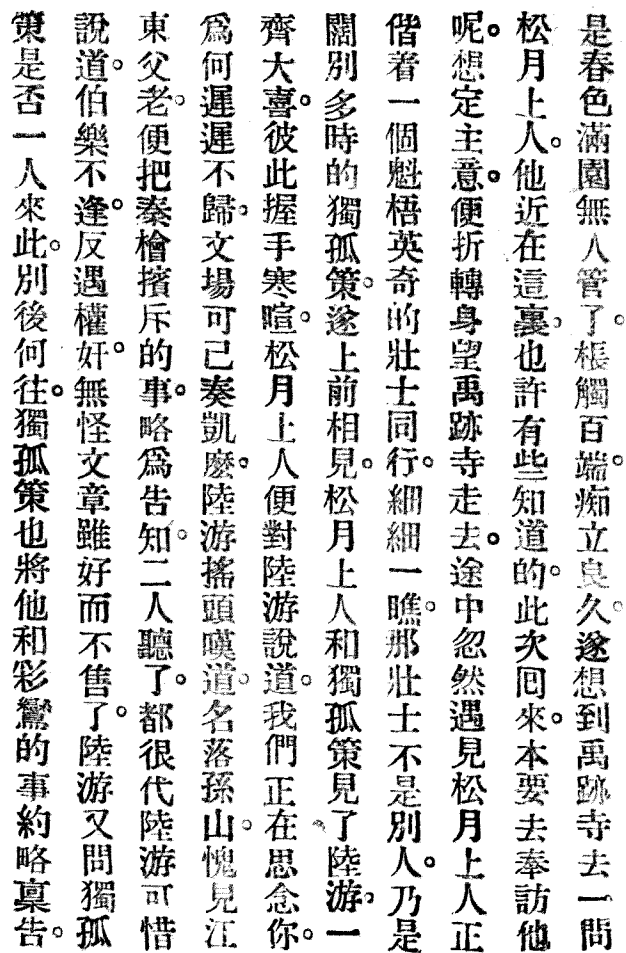 是春色滿園無人管了。棖觸百端。痴立良久。遂想到禹跡寺去一問
松月上人。他近在這裏。也許有些知道的。此次囘來。本要去奉訪他
呢。想定主意。便折轉身望禹跡寺走去。途中忽然遇見松月上人正
偕着一個魁梧英奇的壯士同行。細細一瞧。那壯士不是別人。乃是
闊別多時的獨孤策。遂上前相見。松月上人和獨孤策見了陸游。一
齊大喜。彼此握手寒暄。松月上人便對陸游說道。我們正在思念你。
爲何遲遲不歸。文場可已奏凱麽。陸游搖頭嘆道。名落孫山。愧見江
東父老。便把秦檜擯斥的事。略爲告知。二人聽了。都很代陸游可惜
說道。伯樂不逢。反遇權奸。無怪文章雖好而不售了。陸游又問獨孤
策是否一人來此。別後何往。獨孤策也將他和彩鸞的事約略稟告。